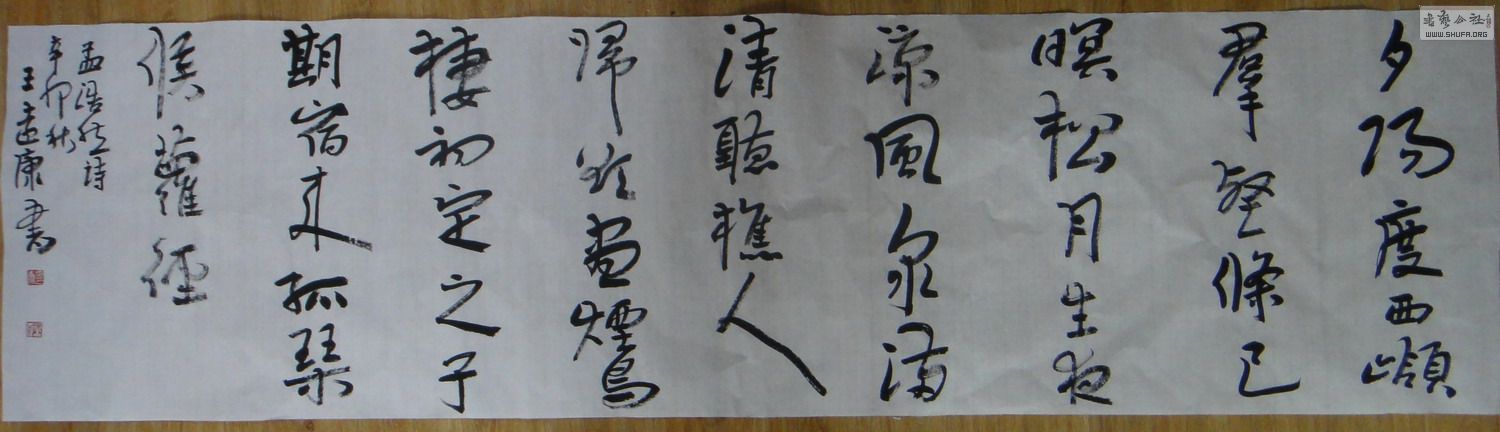 夕陽度西嶺
羣壑倏已
暝松月生夜
涼風泉滿
清聽樵人
歸欲盡煙鳥
棲初定之子
期宿来孤琴
候蘿徑
孟浩然詩
辛卯秋
王康書
書藝公社
WWW.SHUFA.ORG